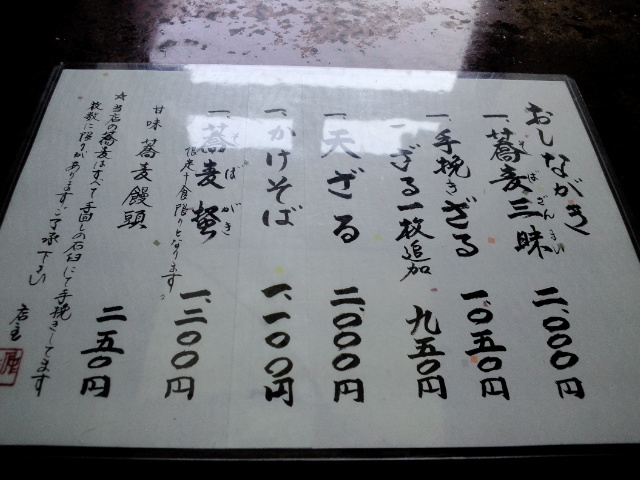 おしながき
一、蕎麦三昧 二、〇〇〇円
そばざんまい
一、手挽きざる 一、〇五〇円
一、ざる一枚追加 九五〇円
一、天ざる 二、〇〇〇円
一、かけそば 一、一〇〇円
一、蕎麦掻 一、二〇〇円
そばがき
限定十食限りとなります
甘味 蕎麦饅頭 二五〇円
☆当店の蕎麦はすべて手回しの石臼にて手挽きしてます
枚数に限りがあります。ご了承下さい 店主